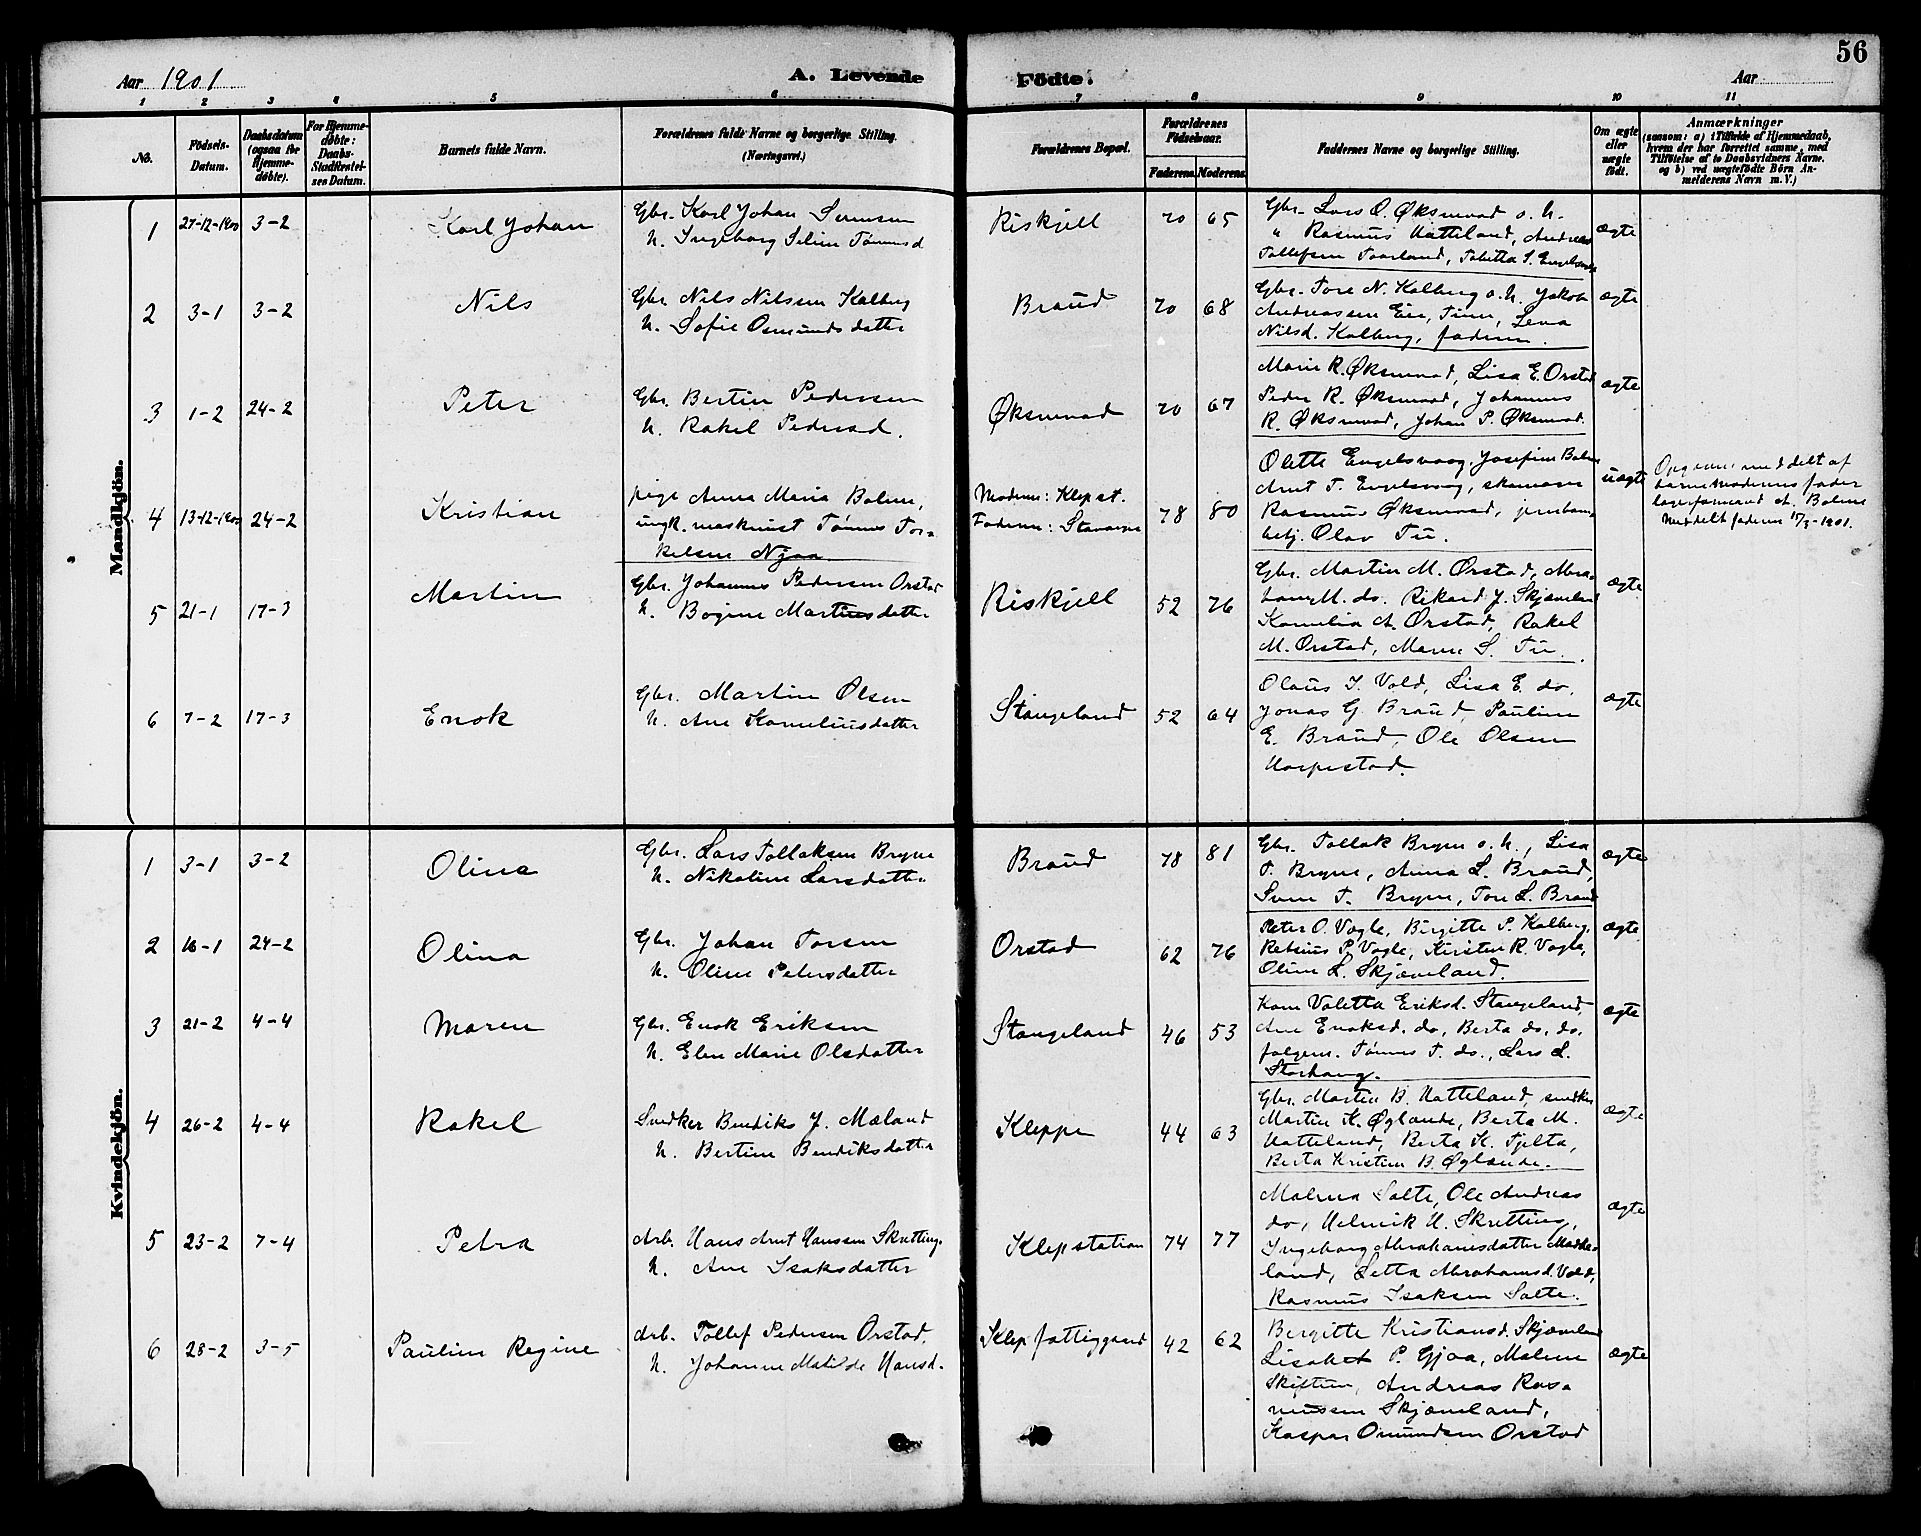 56
Aar 1901
A. Levende Födte.
Aar
1 2 3 4 5 6 7 8 9 10 11
No.
Födsels-Datum.
Daabsdatum (ogsaa for Hjemme-døbte).
For Hjemme-døbte: Daabs-Stadfæstel-ses Datum.
Barnets fulde Navn.
Forældrenes fulde Navne og borgerlige Stilling. (Næringsvei.)
Forældrenes Bopæl.
Forældrenes Födselsaar.
Faderens. Moderens.
Faddernes Navne og borgerlige Stilling.
Om ægte eller uægte født.
Anmærkninger
(saasom: a) i Tilfælde af Hjemmedaab,
hvem der har forrettet samme, med
Tilföielse af to Daabsvidners Navne.
og b) ved uægtefödte Börn An-
melderens Navn m. V.)
Mandkjön.
1 27-12-1900 3-2 Karl Johan
Gbr. Karl Johan
h. Ingeborg Seline
Riskjell 70 65
Gbr. Lars O. Øksnevad o. h.
" Rasmus Hatteland, Andreas
Tollefsen Taarland,
ægte
2 3-1 3-2 Nils
Gbr. Nils Nilssen Kalberg
h. Sofie Osmundsdatter
Braud 70 68
Gbr. Tore N. Kalberg o. h. Jakob
Andreassen Lena
Nilsd. Kalberg, faderen.
ægte
3 1-2 24-2 Peter
Gbr. Bertin Pedersen
h. Rakel Pedersd.
Øksnevad 70 67
Marie R. Øksnevad, Lisa E. Orstad
Peder R. Øksnevad, Johannes
R. Øksnevad, Johan P. Øksnevad.
ægte
4 13-12-1900 24-2 Kristian
pige Anna Maria Bolene,
ungk. maskinist Tønnes Tor-
kelsen Njaa
Moderen: Klep st.
Faderen: Stavanger
78 80
Olette Engelsvaag, Josefine
Arnt T. Engelsvaag,
Rasmus Øksnevad,
Olav Tu.
uægte
meddelt af
barnemoderens fader
A.
Meddelt faderen 1901.
5 21-1 17-3 Martin
Gbr. Johannes Pedersen Orstad
h. Bogine Martinsdatter
Riskjell 52 76
Gbr. Martin M. Orstad, Abra-
ham M. do. Rikard J. Skjæveland
Kornelia A. Orstad, Rakel
M. Orstad, Maren S. Tu.
ægte
6 7-2 17-3 Enok
Gbr. Martin Olsen
h. Ane Korneliusdatter
Stangeland 52 64
Olaus I. Vold, Lisa E. do.
Jonas G. Braud, Pauline
E. Braud, Ole Olsen
Horpestad.
ægte
Kvindekjön.
1 3-1 3-2 Olina
Gbr. Lars Tollaksen Bryne
h. Nikoline Larsdatter
Braud 78 81
Gbr. Tollak Bryne o. h., Lisa
T. Bryne, Anna L. Braud,
Sven T. Bryne, Tore L. Braud
ægte
2 16-1 24-2 Olina
Gbr. Johan Torsen
h. Oline Petersdatter
Orstad 62 76
Peter O. Vagle, Birgitte P. Kalberg,
Retsius P. Vagle, Kirsten R. Vagle,
Oline L. Skjæveland.
ægte
3 21-2 4-4 Maren
Gbr. Enok Eriksen
h. Elen Marie Olsdatter
Stangeland 46 53
Kone Valetta Eriksd. Stangeland,
Ane Enoksd. do, Berta do. do.
følgem. Tønnes T. do., Lars L.
Storhaug.
ægte
4 26-2 4-4 Rakel
Snedker Bendiks J. Mæland
h. Bertine Bendiksdatter
Kleppe 44 63
Gbr. Martin B. Hatteland, snedker
Martin K. Øglænde, Berta M.
Hatteland, Berta K. Tjelta,
Berta Kristine B. Øglænde.
ægte
5 23-2 7-4 Petra
Arb. Hans Arnt Hanssen Skretting.
h. Ane Isaksdatter
Klep station 74 77
Malena Salte, Ole Andreas
do, Helmik H. Skretting,
Ingeborg Abrahamsdatter
land, Letta Abrahamsd. Vold,
Rasmus Isaksen Salte.
ægte
6 28-2 3-5 Pauline Regine
Arb. Tollef Pedersen Orstad,
h. Johanne Matilde Hansd.
Klep fattiggaard 42 62
Bergitte Kristiansd. Skjæveland
Lisabet P. Gjaa, Malene
Andreas Ras-
mussen Skjæveland,
Kaspar Omundsen Orstad
ægte